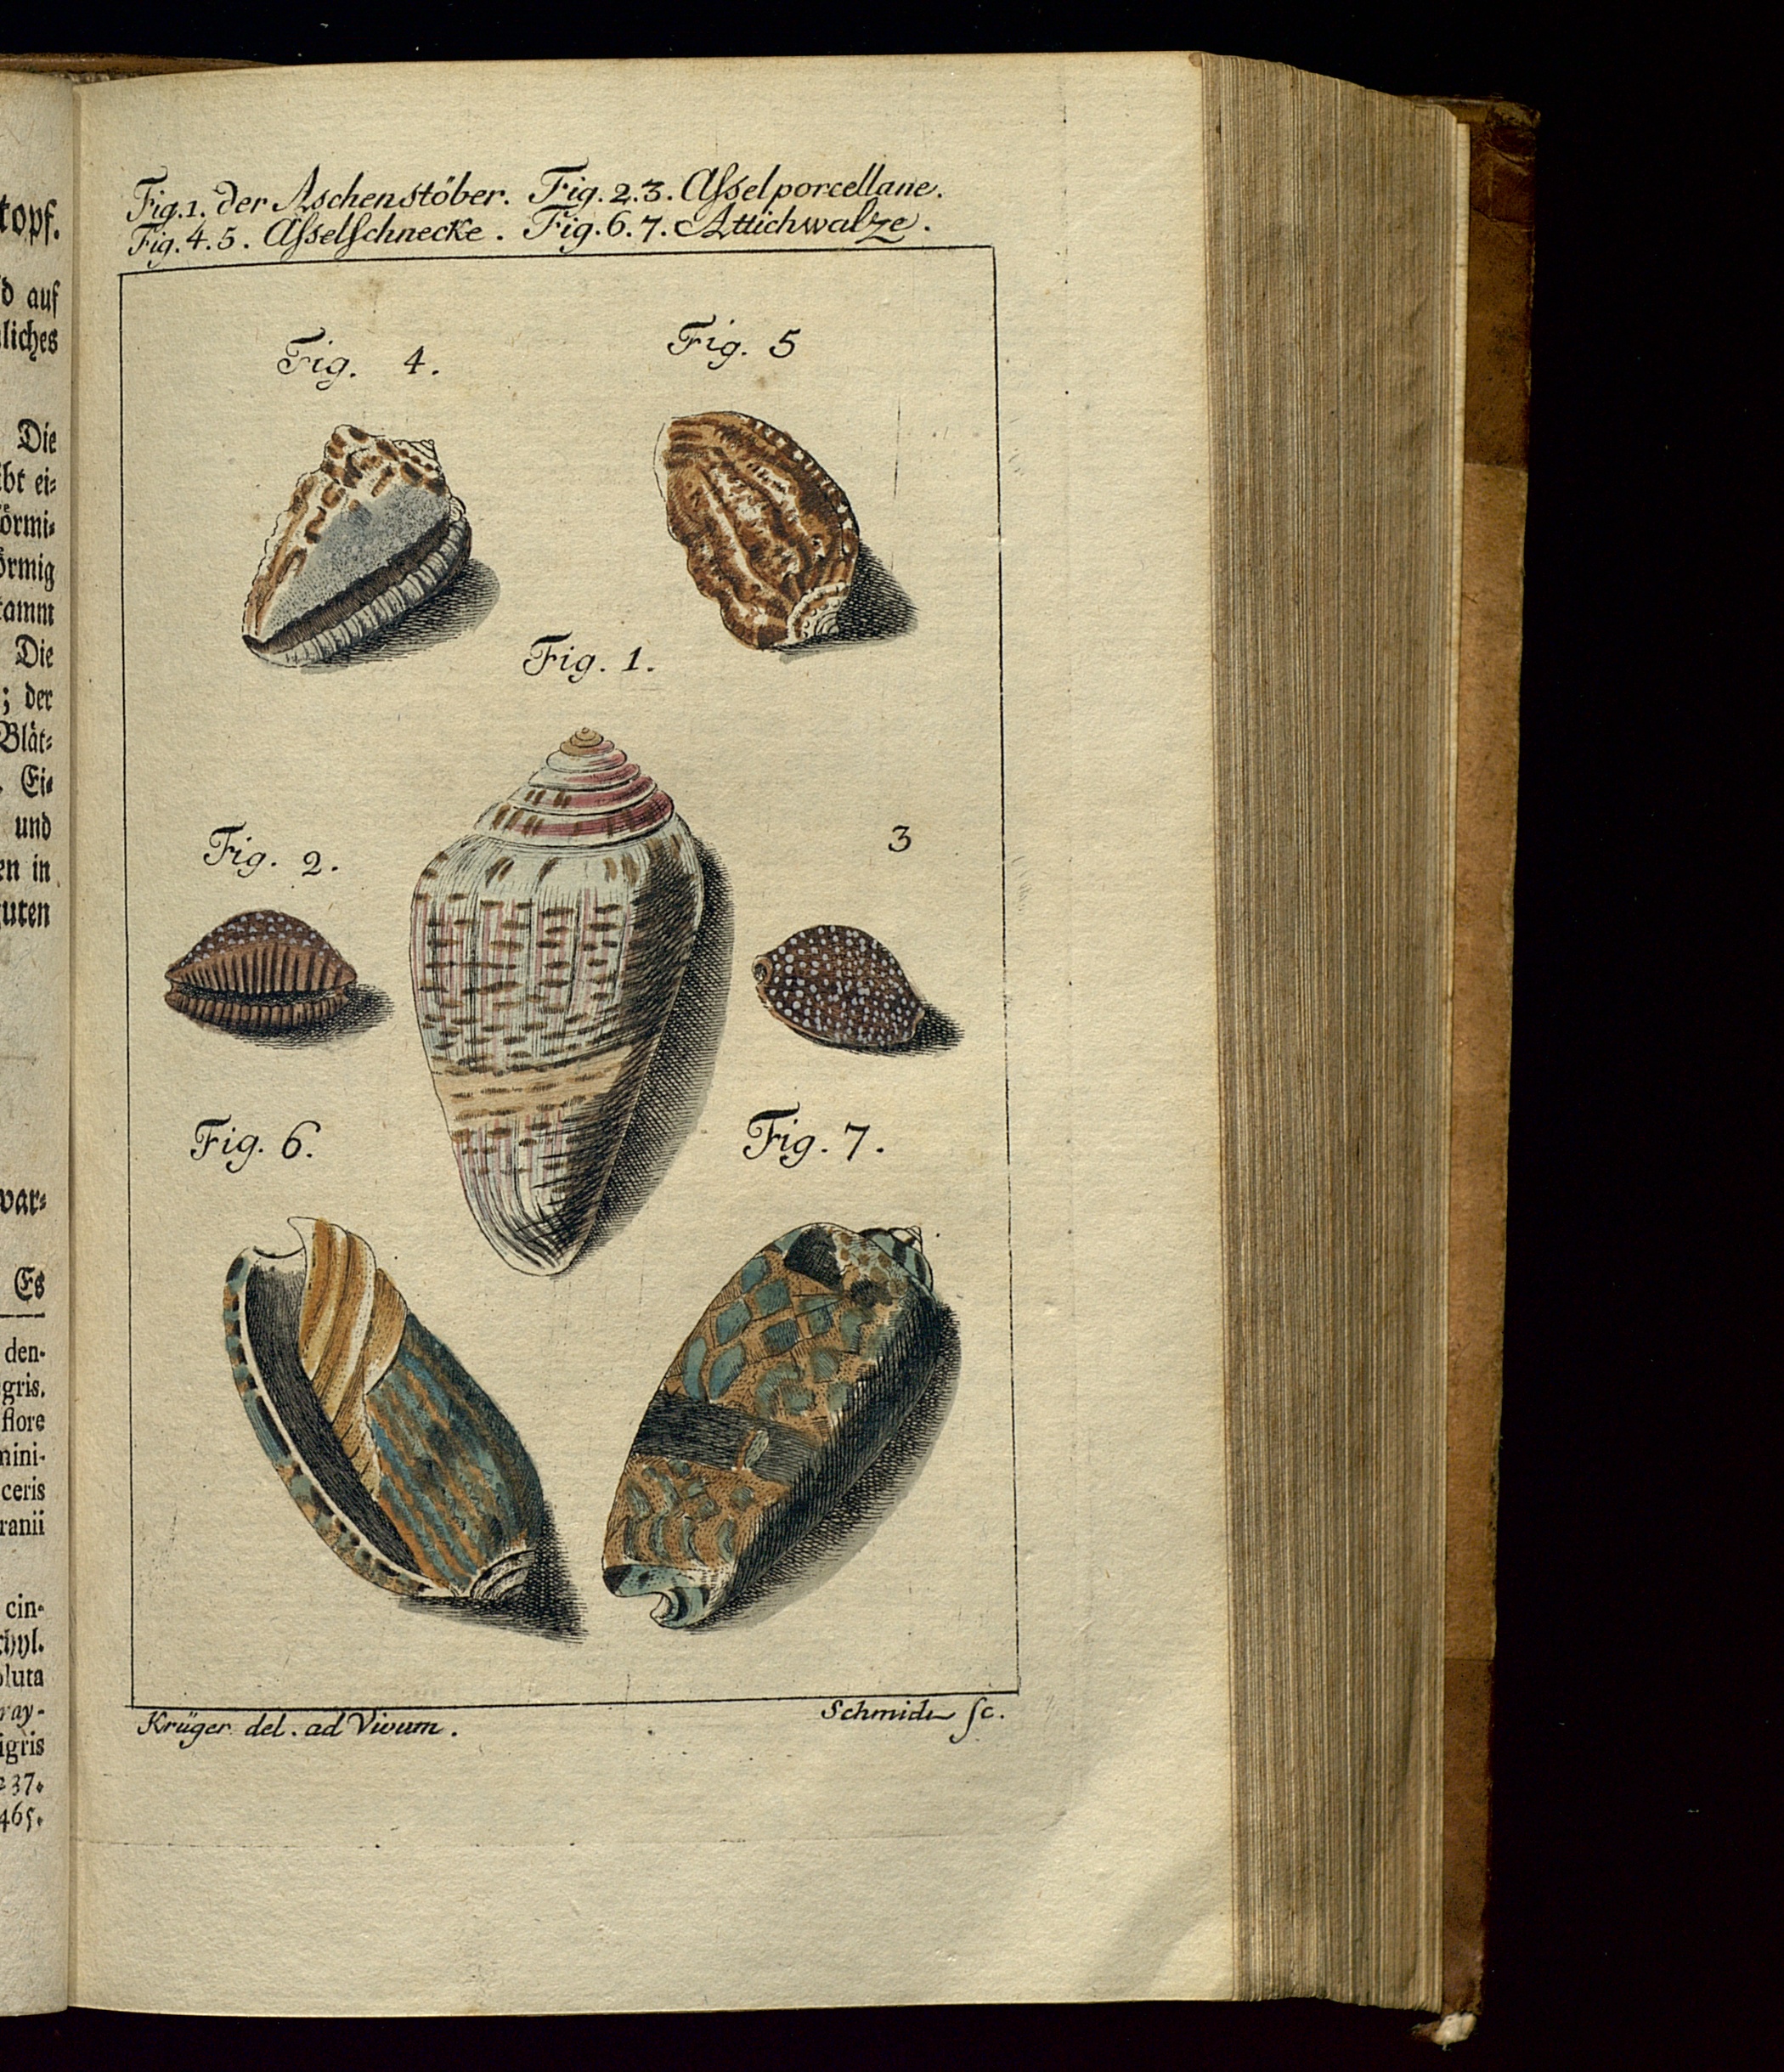 topf.
d auf
liches
Die
ibt ei-
örmi-
örmig
tamm
Die
; der
Blät-
. Ei-
und
en in
uten
var-
Es
den-
gris.
flore
mini-
ceris
ranii
cin-
chyl.
oluta
ray-
igris
237.
465.
Fig. 1. der Aschenstöber. Fig. 2. 3. Aſſelporcellane.
Fig. 4. 5. Aſſelſchnecke. Fig. 6. 7. Attichwalze.
Fig. 4.
Fig. 5
Fig. 1.
Fig. 2.
3
Fig. 6.
Fig. 7.
Krüger del. ad Vivum.
Schmidt ſc.